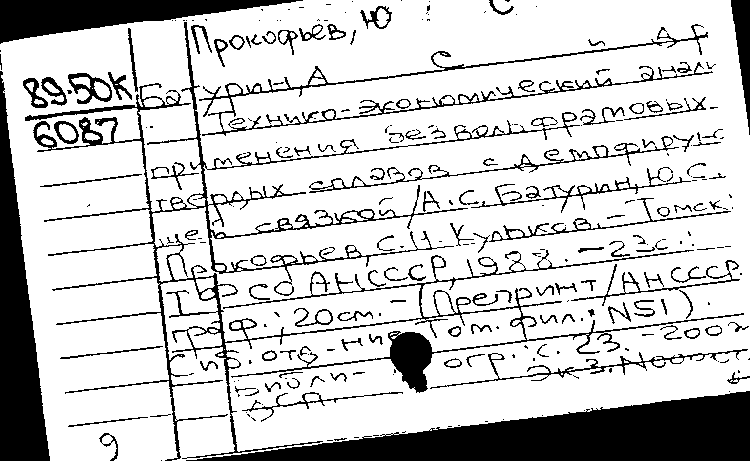 Прокофьев, Ю. С
89-50К
6087
Батурин, А С и др
Технико-экономический анали
применения безвольфрамовых
твердых сплавов с демпфирую
щей связкой / А.С. Батурин, Ю.С.
Прокофьев, С.Н. Кульков. - Томск:
ТФ СО АН СССР, 1988. - 23с.:
граф.; 20см. - (Препринт / АН СССР.
Сиб. отд-ние Том. фил.; N51).
Библи- огр.: с. 23. - 200
экз.
9